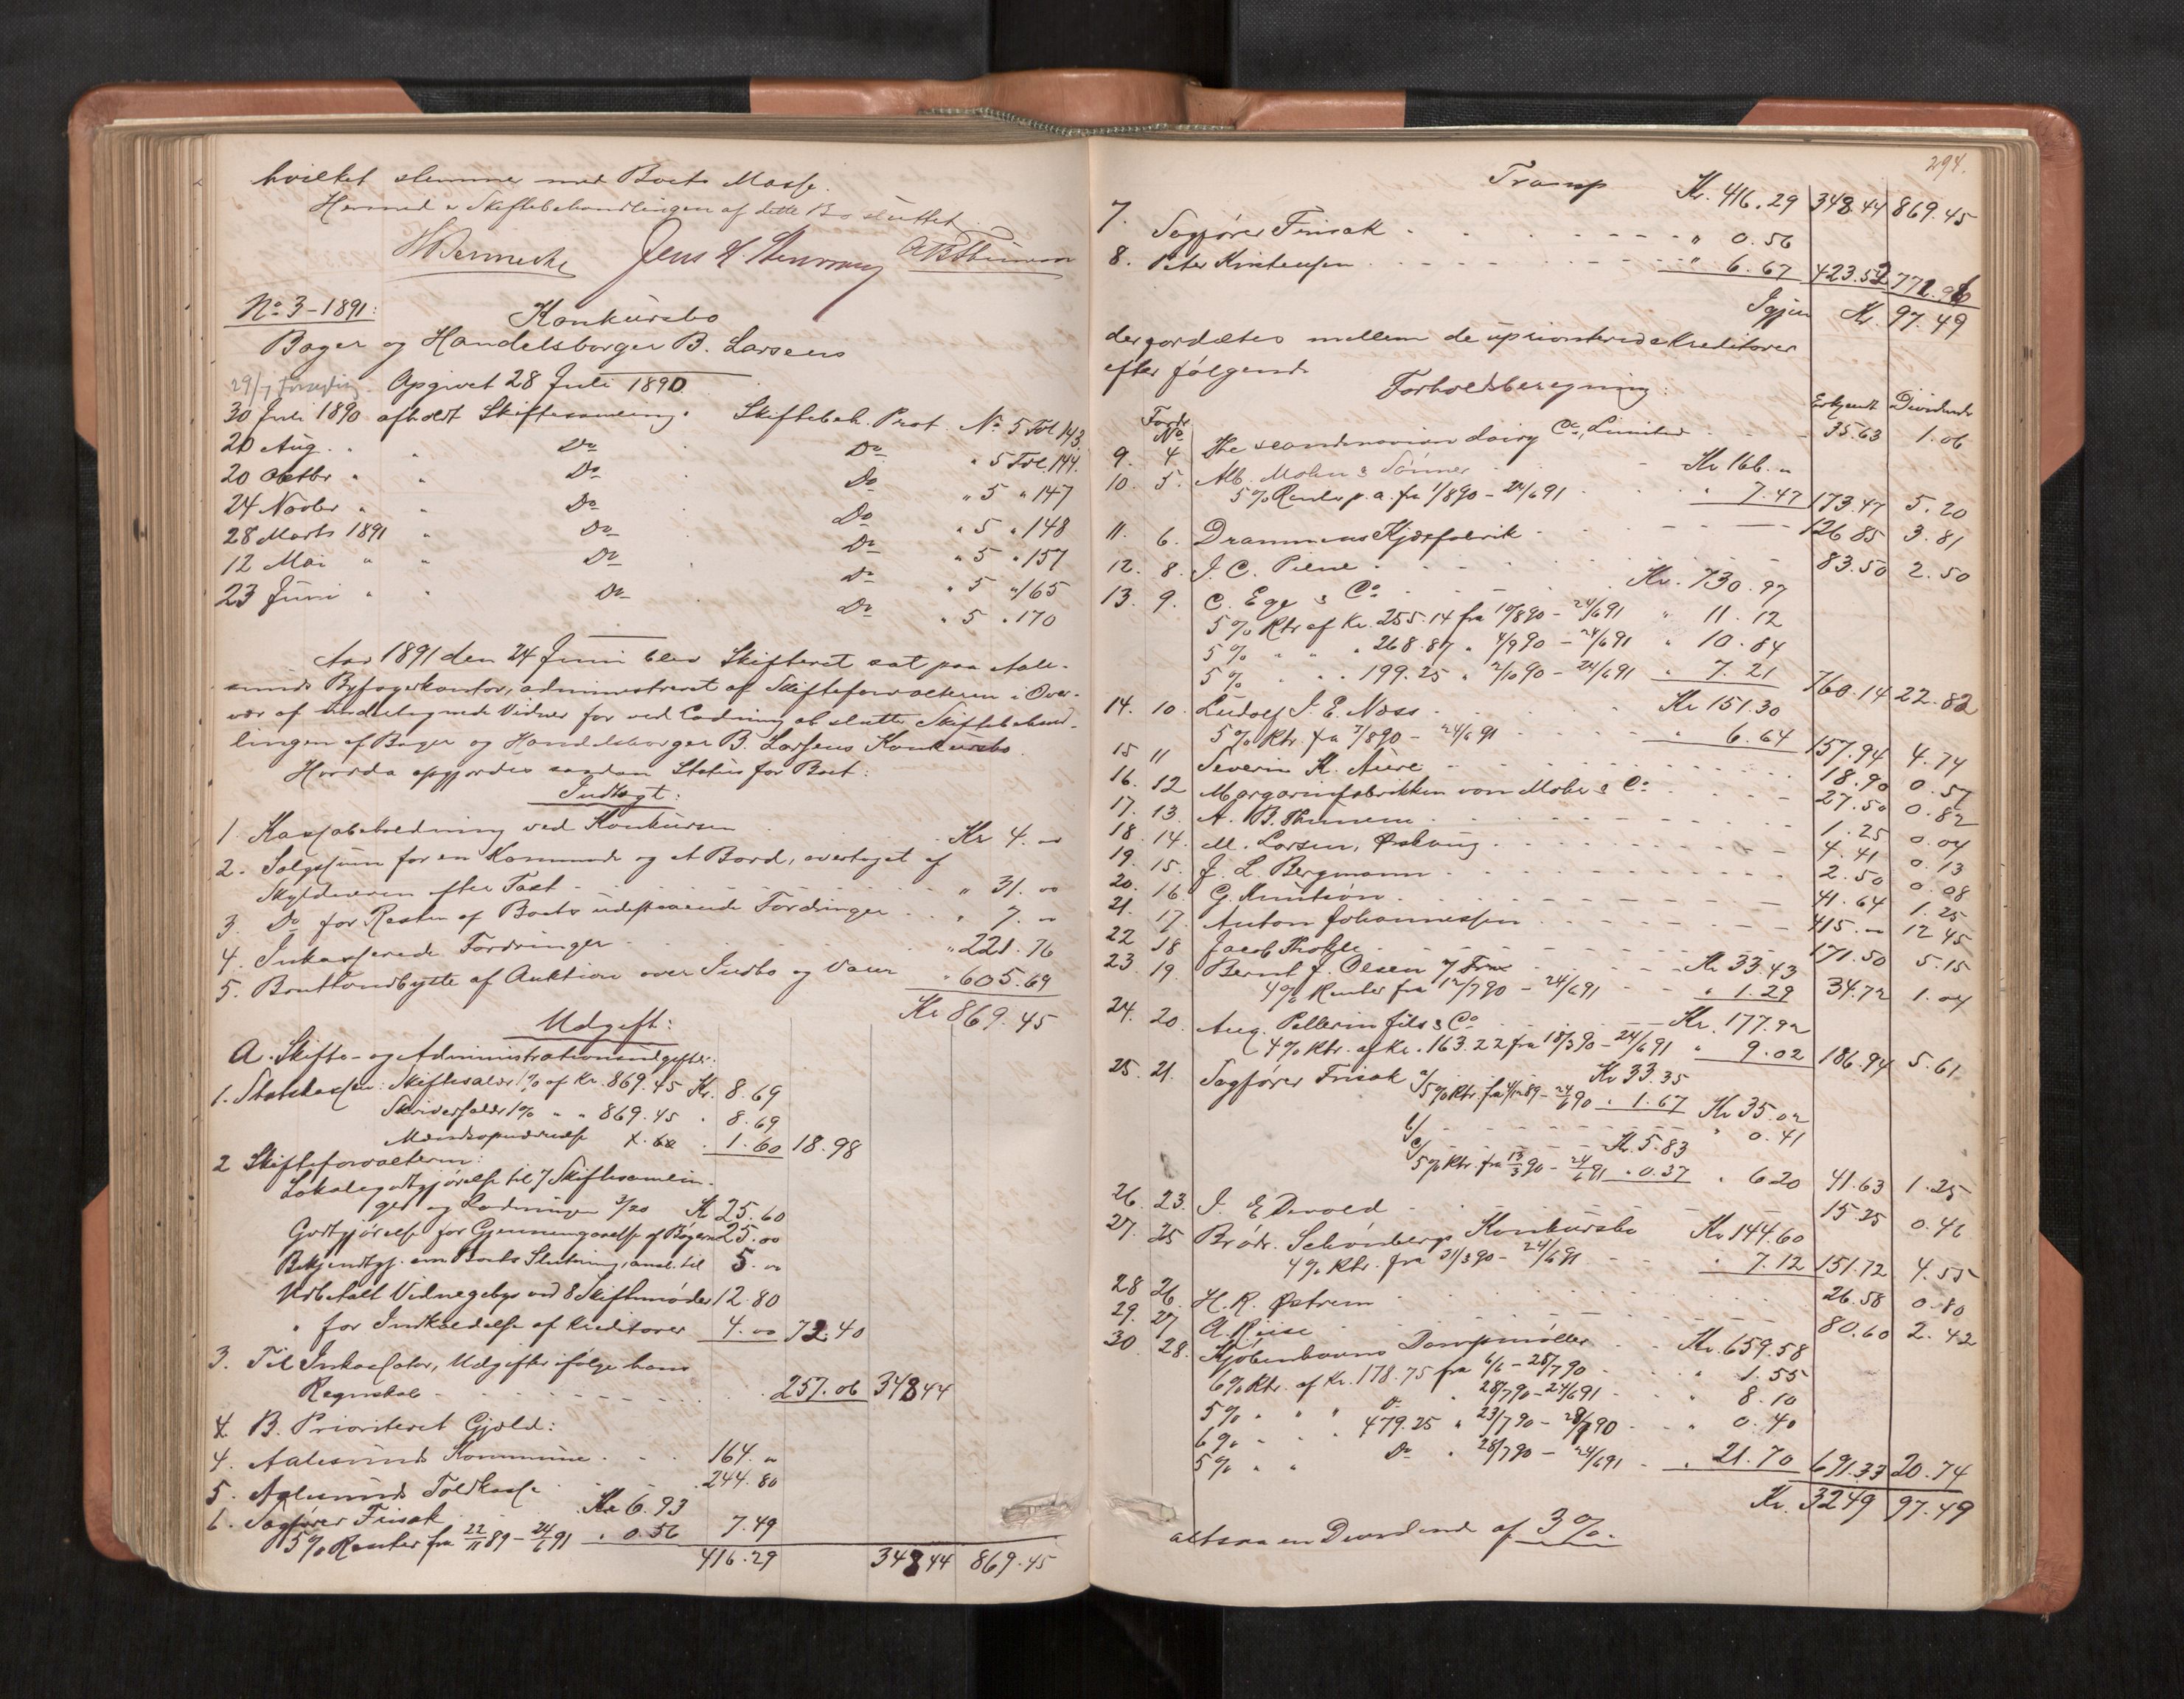 hvilket stemmer med Boets Masse.
Hermed er Skiftebehandlingen af dette Bo sluttet.
No 3 - 1891:
Konkursbo
Bager og Handelsborger B. Larsens
29/7
Opgivet 28 Juli 1890.
30 Juli 1890 afholdt Skiftesamling. Skiftebeh. Prot No 5 Fol 143
20 Aug. " " Do Do " 5 Fol. 144.
20 Oktbr " " Do Do " 5 " 147
24 Novbr " " Do Do " 5 " 148
28 Marts 1891 " Do Do " 5 " 157
12 Mai " " Do Do " 5 " 165
23 Juni " " Do Do " 5 " 170
Aar 1891 den 24 Juni blev Skifteret sat paa Aale-
sunds Byfogedkontor, administreret af Skifteforvalteren i Over-
vær af undertegnede Vidner for ved Lodning at slutte Skiftebehand-
lingen af Bager og Handelsborger B. Larsens Konkursbo.
Hvorda opgjordes saadan Status for Boet:
Indtægt:
1. Kassabeholdning ved Konkursen Kr 4. "
2. Salgssum for en Kommode og et Bord, overtaget af
Skyldneren efter Taxt " 31. 00
3. Do for Resten af Boets udestaaende Fordringer " 7. "
4. Inkasserede Fordringer " 221.76
5. Bruttoudbytte af Auktion over Indbo og Varer " 605.69
Kr 869.45
Udgift:
A. Skifte- og Administrationsudgifter:
1. Statskassen: Skiftesalær 1% af Kr. 869.45 Kr. 8.69
Skriversalær 1% " " 869.45 " 8.69
1.60 18.98
2 Skifteforvalteren:
Lokalegodtgjørelse til 7 Skiftesamlin-
ger og Lodningen 3/20 Kr 25.60
Godtgjørelse for Gjennemgaaelse af Bøgerne 25.00
Bekjendtgj. om Boets Slutning, ansl. til 5. "
Udbetalt Vidnegebyr ved 8 Skiftemøder 12.80
" for Indkaldelse af Kreditorer 4.00 72.40
3. Til Inkassator, Udgifter ifølge hans
Regnskab 257.06 348.44
4. B. Prioriteret Gjæld:
4. Aalesunds Kommune 164. "
5. Aalesunds Toldkasse 244.80
6. Sagfører Frisak Kr 6.93
5% Renter fra 22/11 89 - 24/6 91 " 0.56 7.49
416.29 348 44 869.45
294.
Transp Kr. 416.29 348.44 869.45
7. Sagfører Frisak " 0.56
8. Peter Kristensen " 6.67 423.52 771.96
Igjen Kr. 97.49
der fordeles mellem de uprioriterede Kreditorer
efter følgende
Forholdsberegning:
Fordr. No Erkjendt Dividende
9. 4 The scandinavian dairy Co, Limited 35.63 1.06
10. 5. Alb. Mohn & Sønner Kr 166. "
5% Renter p. a. fra 1/8 90 - 24/6 91 " 7.47 173.47 5.20
11. 6. Drammens Kjæxfabrik 126.85 3.81
12. 8. J. C. Piene 83.50 2.50
13. 9. C. Ege & Co Kr. 730.97
5% Rtr af Kr. 255.14 fra 10/8 90 - 24/6 91 " 11.12
5% " " " 268.87 " 4/9 90 - 24/6 91 " 10.84
5% " " " 199.25 " 2/10 90 - 24/6 91 " 7.21 760.14 22.82
14. 10. Ludolf J. E. Næss Kr 151.30
5% Rtr. fra 7/8 90 - 24/6 91 " 6.64 157.94 4.74
15 11 Severin K. Aure 18.90 0.57
16. 12 Margarinfabrikken von Mohr & Co 27.50 0.82
17. 13. A. B. Thunem 1.25 0.04
18. 14. M. Larsen, Ørskoug 4.41 0.13
19. 15. J. L. Bergmann 2.50 0.08
20. 16. G. 41.64 1.25
21. 17. Anton Johannessen 415. " 12 45
22 18 Jacob 171.50 5.15
23 19. Bernt J. Olsen Kr 33.43
4% Renter fra 12/7 90 - 24/6 91 " 1.29 34.72 1.04
24. 20. Aug. Pellerin fils & Co Kr. 177.92
4% Rtr. af Kr. 163.22 fra 18/3 90 - 24/6 91 " 9.02 186.94 5.61
25. 21. Sagfører Frisak a/ Kr 33.35
5% Rtr. fra 89 - 24/6 90 " 1.67 Kr 35.02
b/ " 0.41
c/ Kr. 5.83
5% Rtr. fra 13/3 90 - 24/6 91 " 0.37 " 6 20 41.63 1.25
26. 23. J. E Devold 15.25 0.46
27. 25 Brødr. Schønbergs Konkursbo Kr 144.60
4% Rtr. fra 31/3 90 - 24/6 91 " 7.12 151.72 4.55
28 26. H. R. Østrem 26.58 0.80
29. 27 A. Riise 80.60 2.42
30. 28. Kjøbenhavns Dampmøller Kr. 659.58
6% Rtr. af Kr. 178.75 fra 6/6 - 28/7 90 " 1.55
5% " " " Do " 28/7 90 - 24/6 91 " 8.10
6% " " " 479.25 " 23/7 90 - 28/7 90 " 0.40
5% " " Do " 28/7 90 - 24/6 91 " 21.70 691.33 20.74
Kr. 3249 97.49
altsaa en Dividende af 3%.